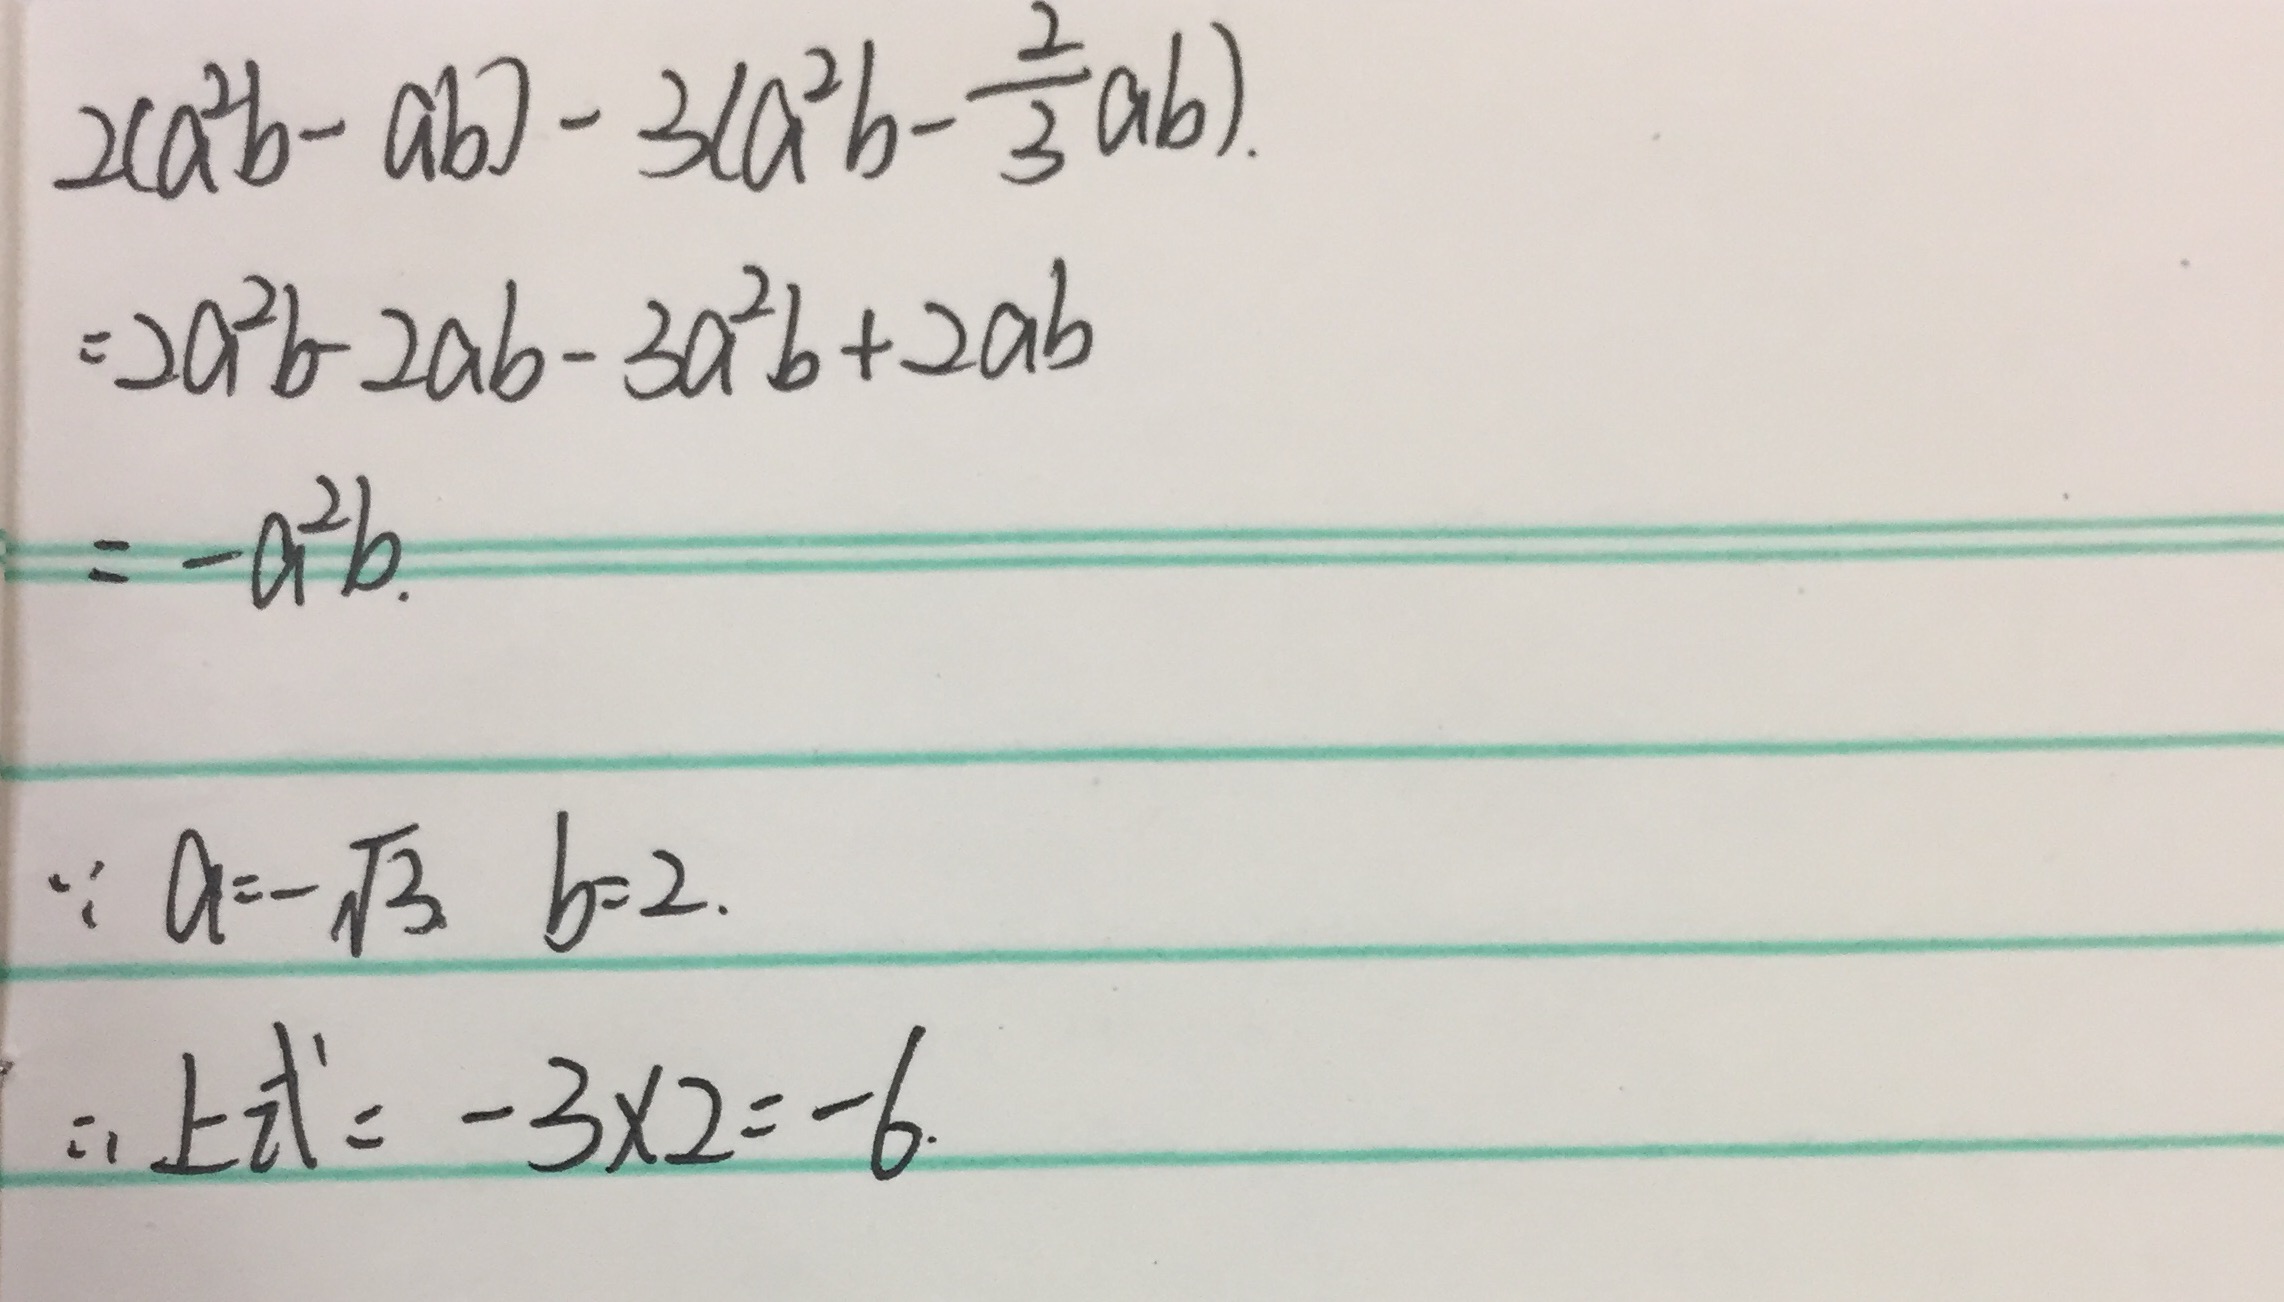 2(a²b - ab) - 3(a²b - 2/3 ab).
= 2a²b - 2ab - 3a²b + 2ab
= -a²b.
∵ a = -√3 b = 2.
∴ 上式 = -3×2 = -6.